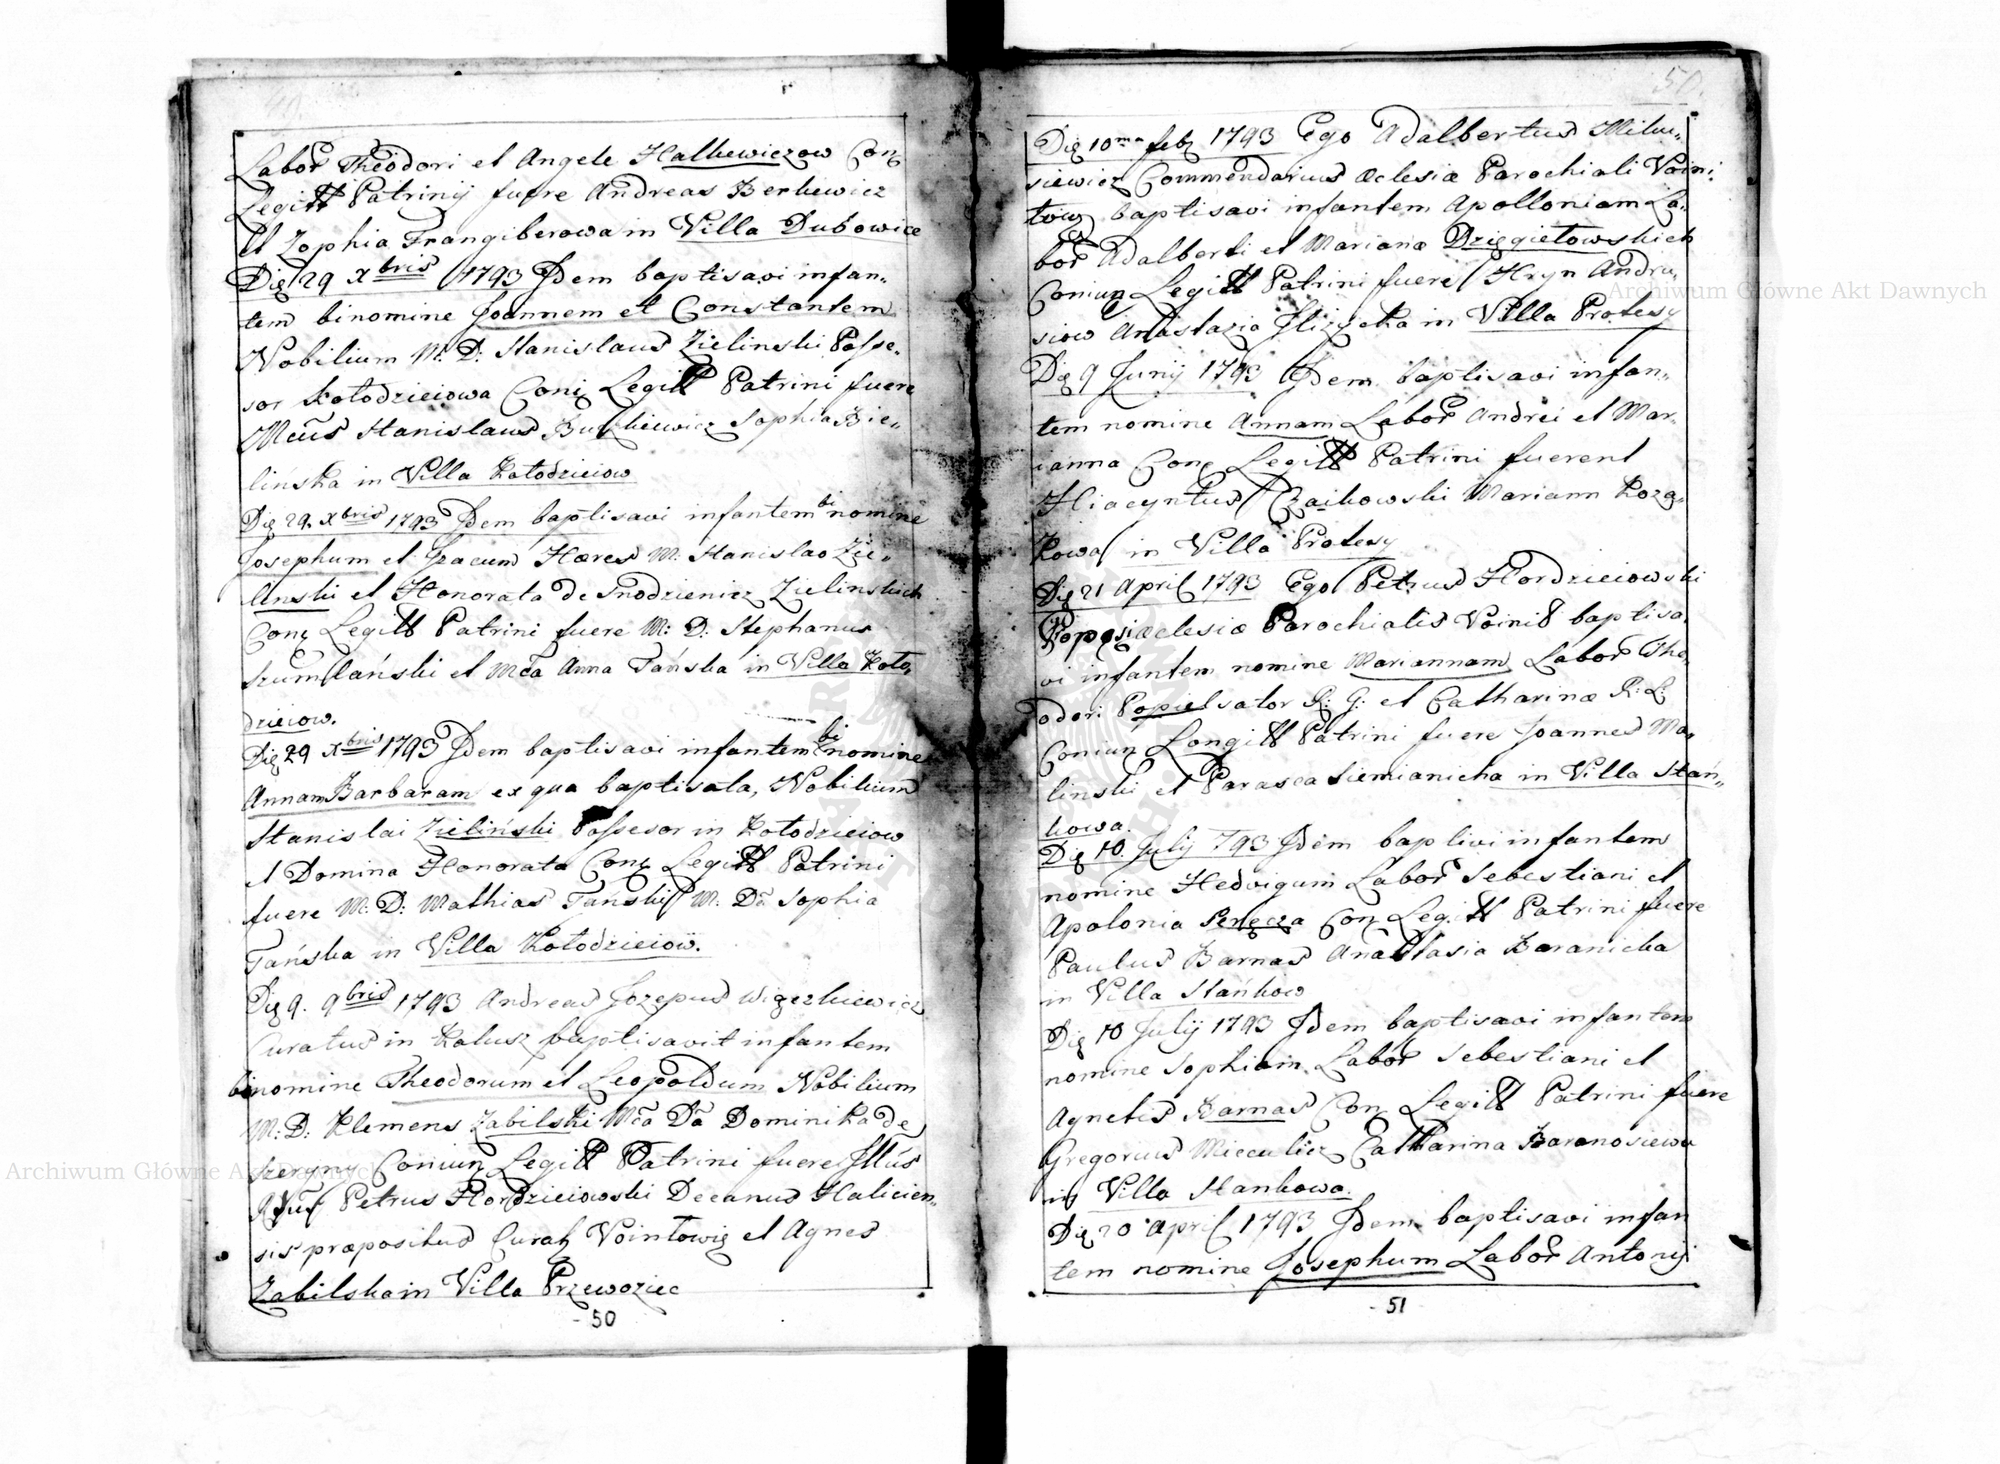 50.
Labor Theodori et Angele Halkewiczow Con
Legitt Patrinij fuere Andreas Berkiewicz
Et Zophia Frangiberowa in Villa Dubowice
Die 29 Xbris 1793 Idem baptisavi infan„
tem binomine Joannem et Constantem
Nobilium M: D: Stanislaus Zielinski Posse„
sor Kołodzieiowa Coni Legitt Patrini fuere
Mcus Stanislaus Sophia Bie„
lińska in Villa Kołodzieiow
Die 29. Xbris 1793 Idem baptisavi infantem bi nomine
Josephum et Hæres M: Stanislao Zie„
linski et Honorata de Zielinskich
Conj Legitt Patrini fuere M: D: Stephanus
Szumlański et Mcá Anna Tańska in Villa Koło„
dzieiow.
Die 29 Xbris 1793 Idem baptisavi infantem bi nomine
Annam Barbaram ex qua baptisata, Nobilium
Stanislai Zieliński Possesor in Kołodzieiow
et Domina Honorata Conj Legitt Patrini
fuere M: D: Mathias Tański M: Dá Sophia
Tańska in Villa Kołodzieiow.
Die 9. 9bris 1793 Andreas Jozepus Wigezkiewicz
Curatus in Kalusz baptisavit infantem
binomine Theodorum et Leopoldum Nobilium
M: D: Klemens Zabilski Mcá Dá Dominika de
Szeryny Coniun Legitt Patrini fuere Illús
Petrus Hordzieiowski Decanus Halicien„
sis præpositus Curat Vointowie et Agnes
Zabilska in Villa Przewoziec
- 50
50.
Die 10ma feb 1793 Ego Adalbertus Milu„
siewicz Commendarius Æclesiæ Parochiali Voini„
tow baptisavi infantem Apolloniam La„
bor Adalberti et Mariana Dzięgietowskich
Coniun Legitt Patrini fuere Hryn Andru„
siow Anastazia in Villa Protesy
Die 9 Junij 1793 Idem baptisavi infan„
tem nomine Annam Labor Andrei et Mar„
ianna Conj Legitt Patrini fuerent
Hiacyntus Czaikowski Mariann Koza„
kowa in Villa Protesy
Die 21 April 1793 Ego Petrus Hordzieiowski
æclesiæ Parochialis Voinit baptisa„
vi infantem nomine Mariannam Labor The„
odori Popielsator R: G: et Catharinæ R: L:
Coniun Longitt Patrini fuere Joannes Ma„
linski et Parasca Siemianicka in Villa Stań„
kowa.
Die 10. July 793 Idem baptivi infantem
nomine Hedvigum Labor Sebestiani et
Apolonia Peręcza Conj Legitt Patrini fuere
Paulus Barnas Anastasia Baranicka
in Villa Stańkow
Die 10 July 1793 Idem baptisavi infantem
nomine Sophiam Labor Sebestiani et
Agnetis Barnas Conj Legitt Patrini fuere
Gregorius Mieculicz Catharina Baranosiewa
in Villa Stankowa.
Die 20 April 1793 Idem baptisavi infan
tem nomine Josephum Labor Antonij
- 51
Archiwum Główne Akt Dawnych
Archiwum Główne Akt Dawnych